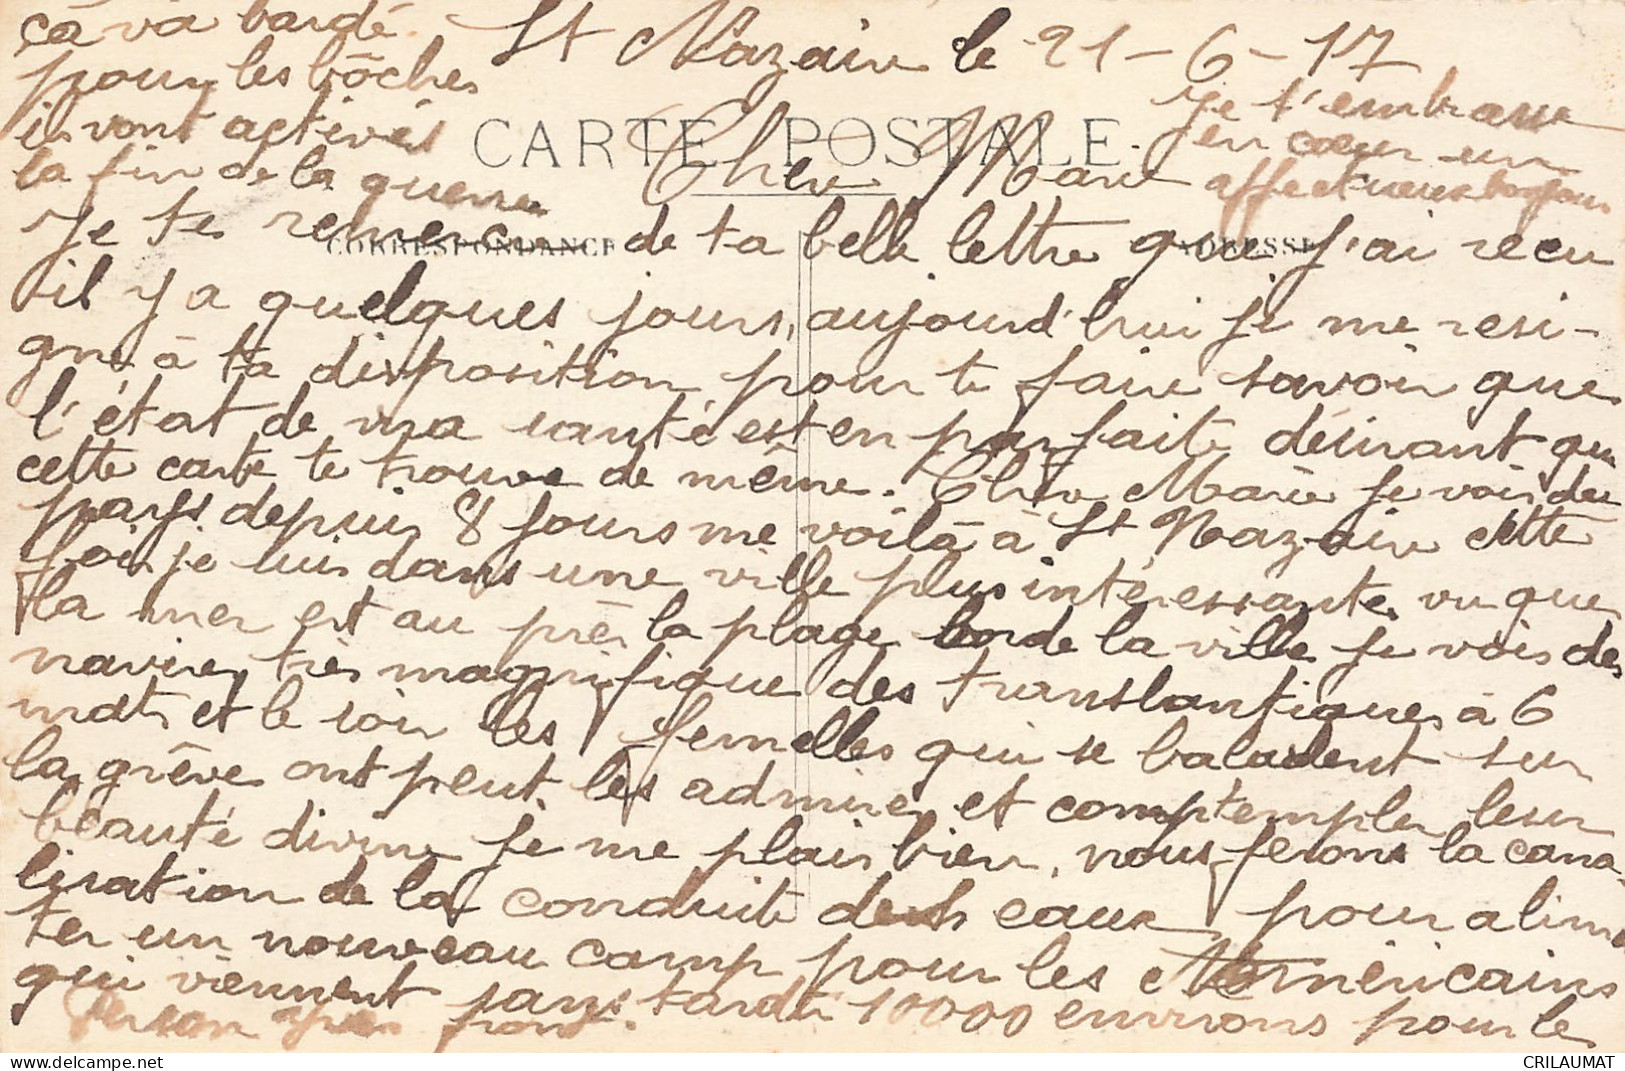 St Nazaire le 21-6-17
CARTE POSTALE
Chère Marie
CORRESPONDANCE
ADRESSE
Je te remercie de ta belle lettre que j'ai recu
il y a quelques jours, aujourd'hui je me resi-
gne à ta disposition pour te faire savoir que
l'état de ma santé est en parfaite désirant que
cette carte te trouve de même. Chère Marie je vois du
pays depuis 8 jours me voilà à St Nazaire cette
fois je suis dans une ville plus intéressante vu que
la mer est au près la plage borde la ville je vois des
navires très magnifique des translantiques à 6
mats et le soir les femelles qui se baladent sur
la grève ont peut les admirer et comptempler leur
beauté divine je me plais bien, nous ferons la cana-
lisation de la conduite des eaux pour alimen
ter un nouveau camp pour les Américains
qui viennent sans tardé 10000 environs pour le
front.
ça va bardé
pour les bôches
ils vont activés
la fin de la guerre
Je t'embrasse
en cœur un
affectueux bonjour
CRILAUMAT